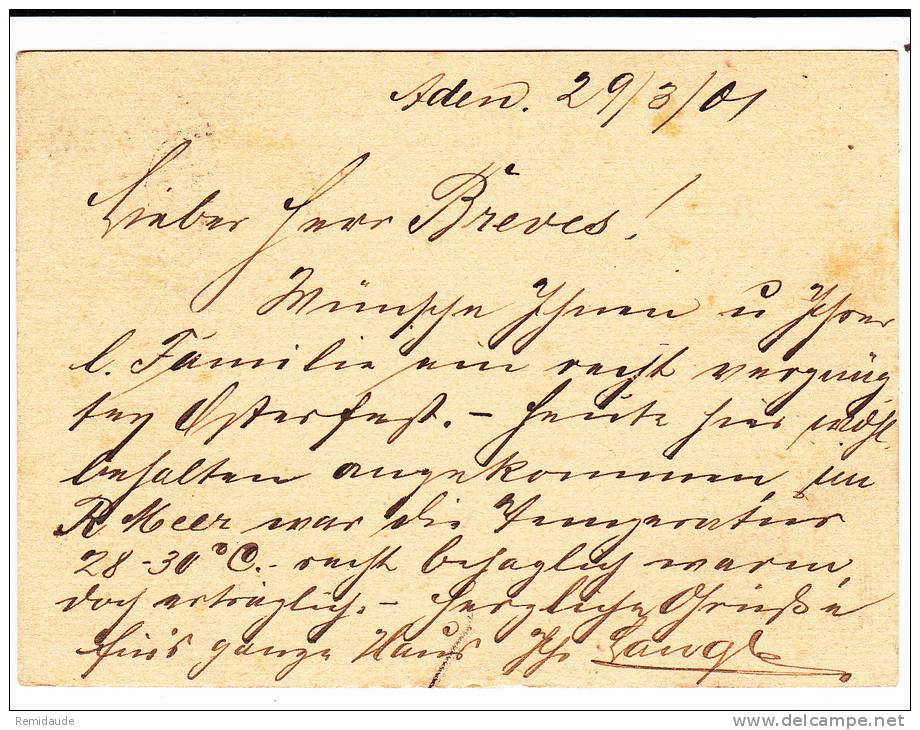 Aden. 29/3/01
Lieber Herr Breves!
Wünsche Ihnen u Ihrer
l. Familie ein recht vergnüg
tes Osterfest. – Heute hier wohl
behalten angekommen, im
R. Meer war die Temperatur
28-30° C. – recht behaglich warm,
doch erträglich. – Herzliche Grüße
für's ganze Haus Ihr
Remidaude
www.delcampe.net